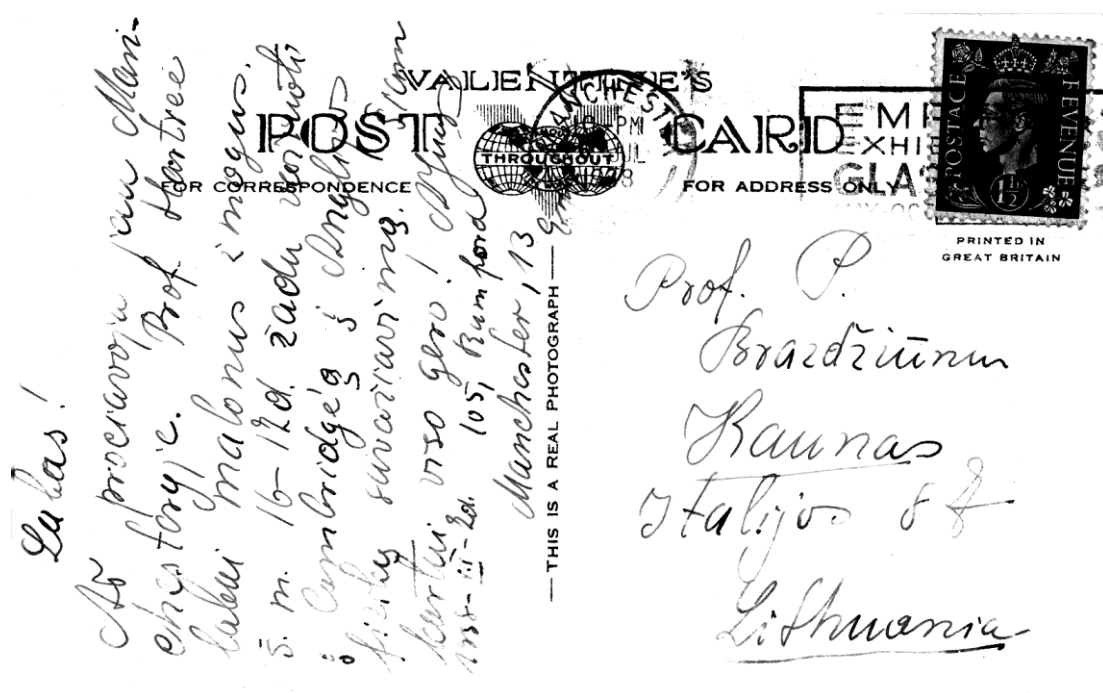 VALENTINE'S
POST CARD
THROUGHOUT
FOR CORRESPONDENCE
FOR ADDRESS ONLY
MANCHESTER
PM
JUL
8
EMP
EXHI
GLAS
POSTAGE REVENUE
1½
PRINTED IN
GREAT BRITAIN
THIS IS A REAL PHOTOGRAPH
Labas!
Aš prociavoju jau Man-
chesteryje. Prof. Hartree
labai malonus žmogus.
Š. m. 16–12d. žadu važiuoti
į Cambridge'ą į Anglijos
fizikų suvažiavimą. Šiam
kartui viso gero!
105, Rumford
Manchester, 13
Prof. P.
Brazdžiūnui
Kaunas
Italijos 8
Lithuania